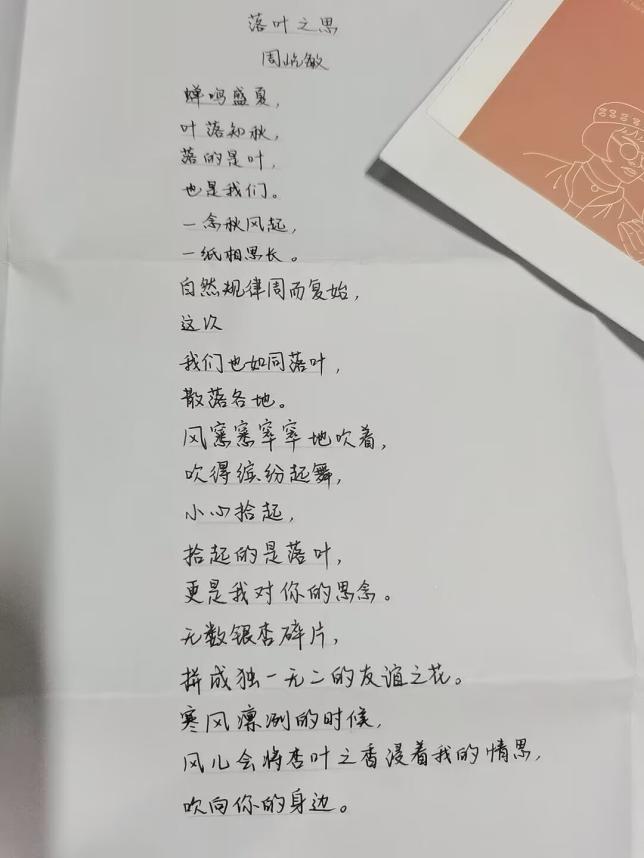 落叶之思
周屹敏
蝉鸣盛夏，
叶落知秋，
落的是叶，
也是我们。
一念秋风起，
一纸相思长。
自然规律周而复始，
这次
我们也如同落叶，
散落各地。
风窸窸窣窣地吹着，
吹得缤纷起舞，
小心拾起，
拾起的是落叶，
更是我对你的思念。
无数银杏碎片，
拼成独一无二的友谊之花。
寒风凛冽的时候，
风儿会将杏叶之香浸着我的情思，
吹向你的身边。